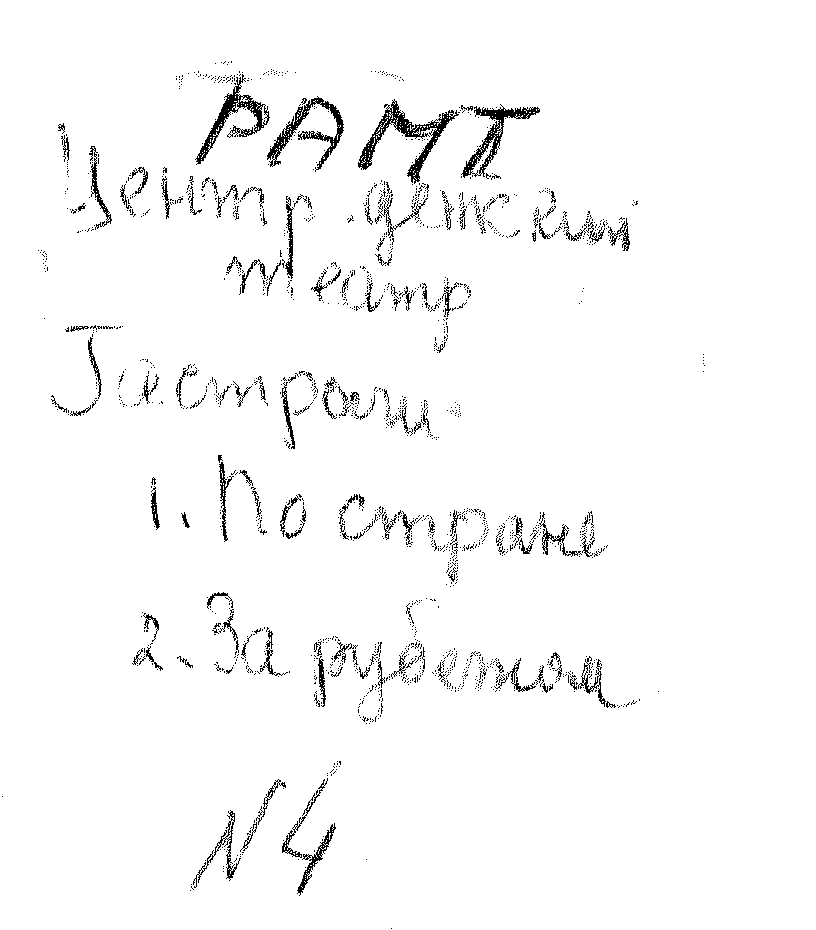 РАМТ
Центр. детский
театр
Гастроли.
1. По стране
2. За рубежом
N 4